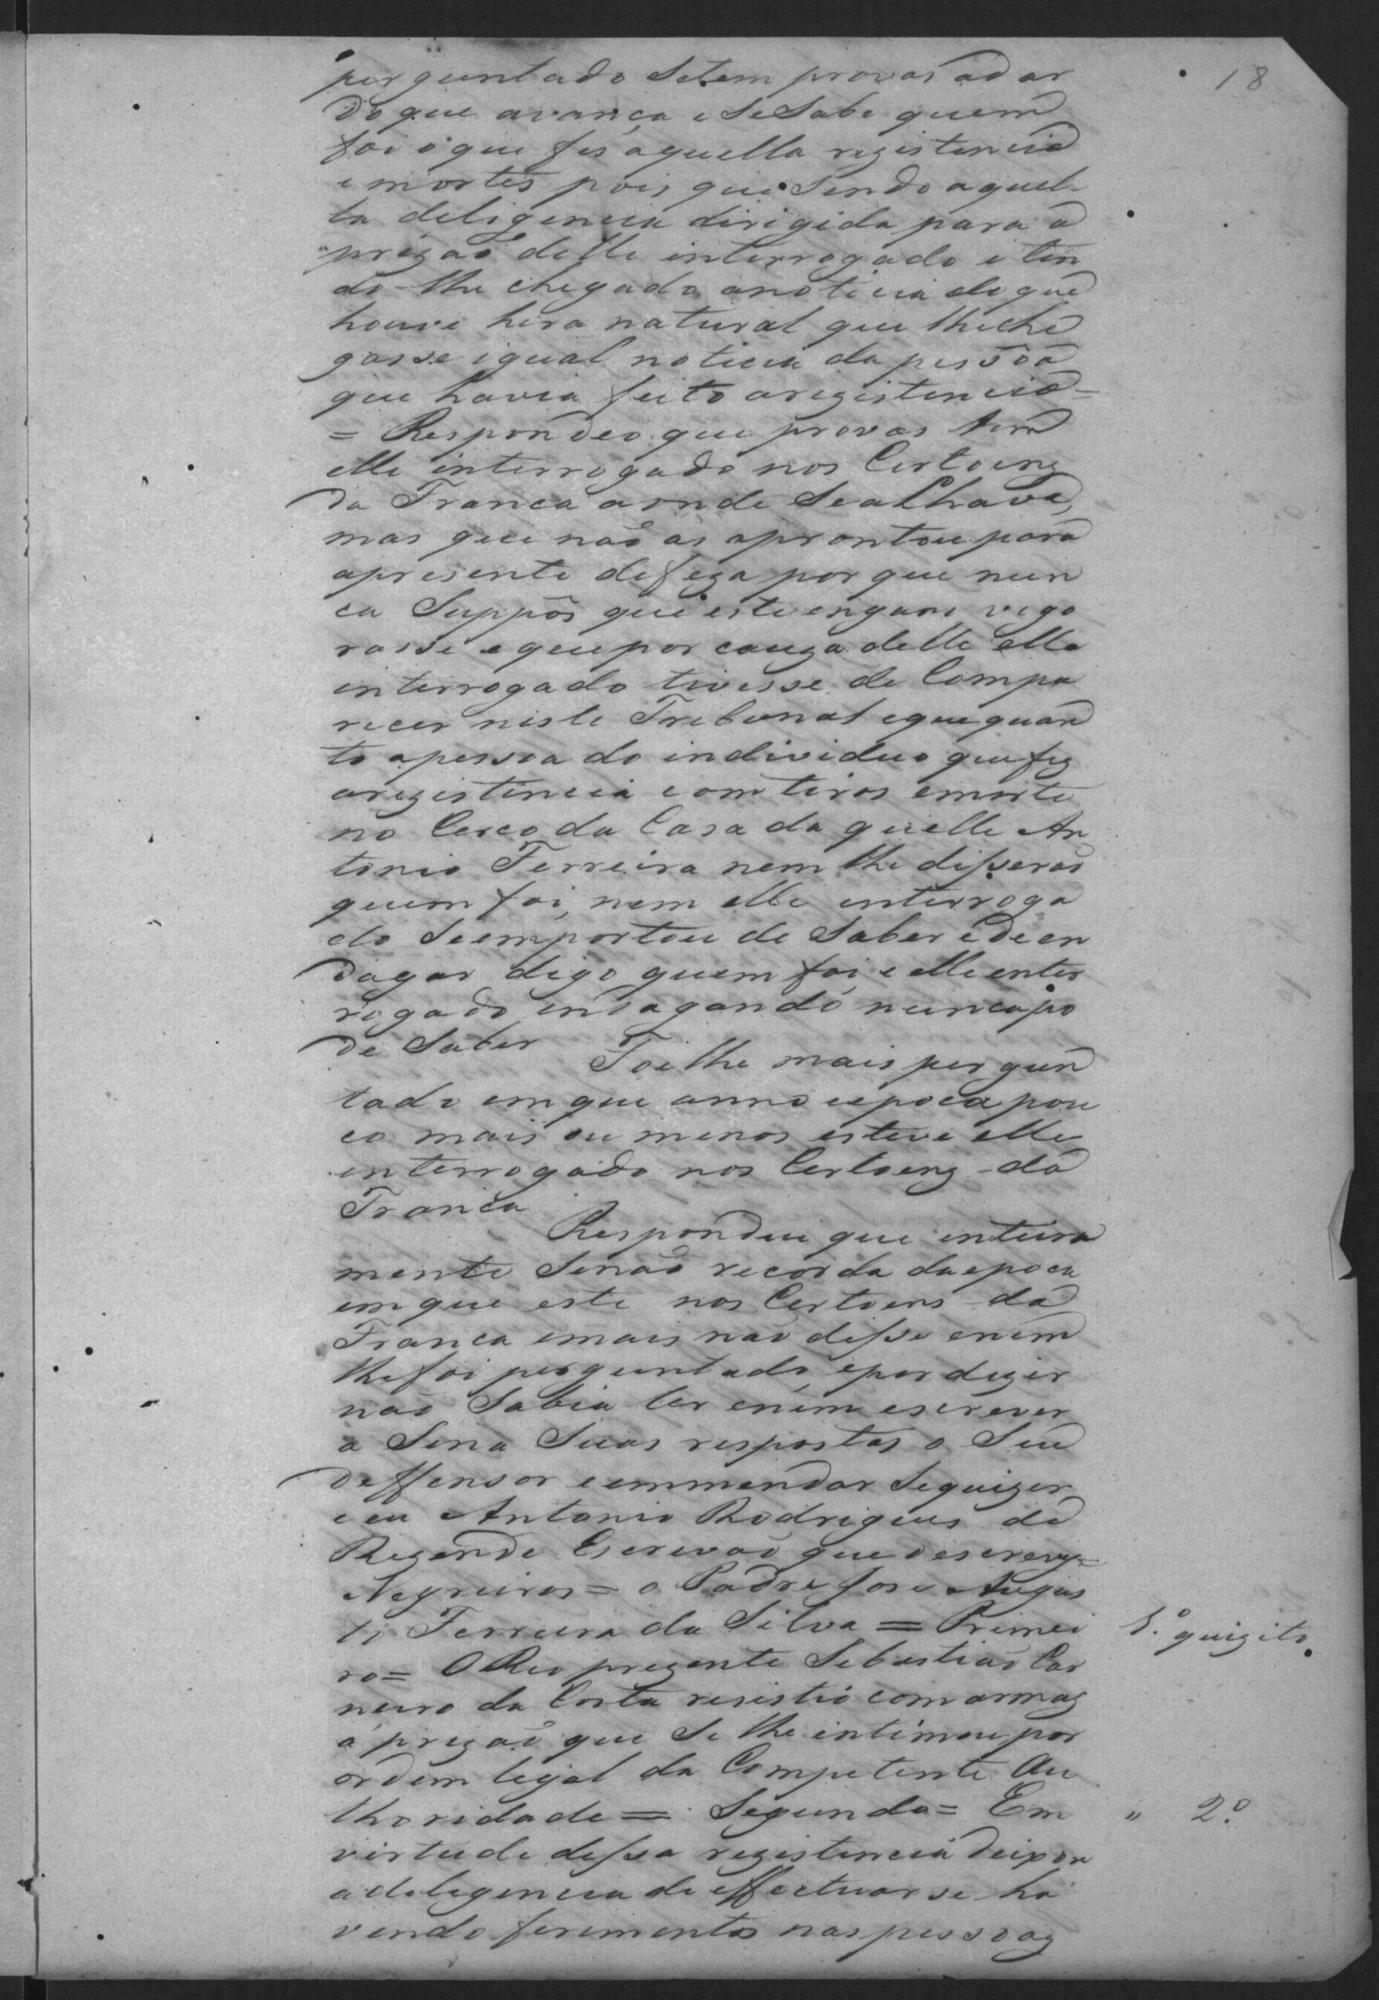 18
perguntado Setem provas adar
do que avança e SeSabe quem
foi o que fes aquella rezistencia
e mortes pois que Sendo aquel-
la deligencia dirigida para a
prizaõ delle interrogado e ten
do-lhe chegado anoticia do que
houve hera natural que lheche
gasse igual noticia da pessoa
que havia feito arezistencia=
= Respondeo que provas tem
elle interrogado nos Certoens
da Franca aonde Seachava,
mas que naõ as aprontou para
apresente defeza por que nun
ca Suppôs que este engano vigo
rasse e que por cauza delle elle
interrogado tivesse de Compa
recer neste Tribunal e que quan
to apessoa do individuo que fez
arezistencia com tiros e morte
no Cerco da Casa da quelle An
tonio Ferreira nem lhe disseraõ
quem foi, nem elle interroga
do Seemportou de Saber e de en
dagar digo quem foi e elle enter
rogado endagando nunca po
de Saber
Foi lhe mais pergun
tado em que anno e epoca pou
co mais ou menos esteve elle
interrogado nos Certoens da
Franca
Respondeu que inteira
mente Senaõ recorda da epoca
em que este nos Certoens da
Franca e mais naõ disse e nem
lhe foi perguntado, e por dizer
naõ Sabia ler e nem escrever
a Sina Suas respostas o Seu
deffensor e emmendar Sequizer
e eu Antonio Rodrigues de
Rezende Escrivaõ que o escrevy=
Negreiros = o Padre Jose Augus
to Ferreira da Silva = Primei
ro= O Reo prezente Sebastiaõ Car
neiro da Costa resistio com armas
a prizaõ que Se lhe intimou por
ordem legal da Competente Au
thoridade = Segundo = Em
virtude dessa rezistencia deixou
a deligencia de effectuar se ha
vendo ferimentos nas pessoas
1.º quizito.
" 2.º